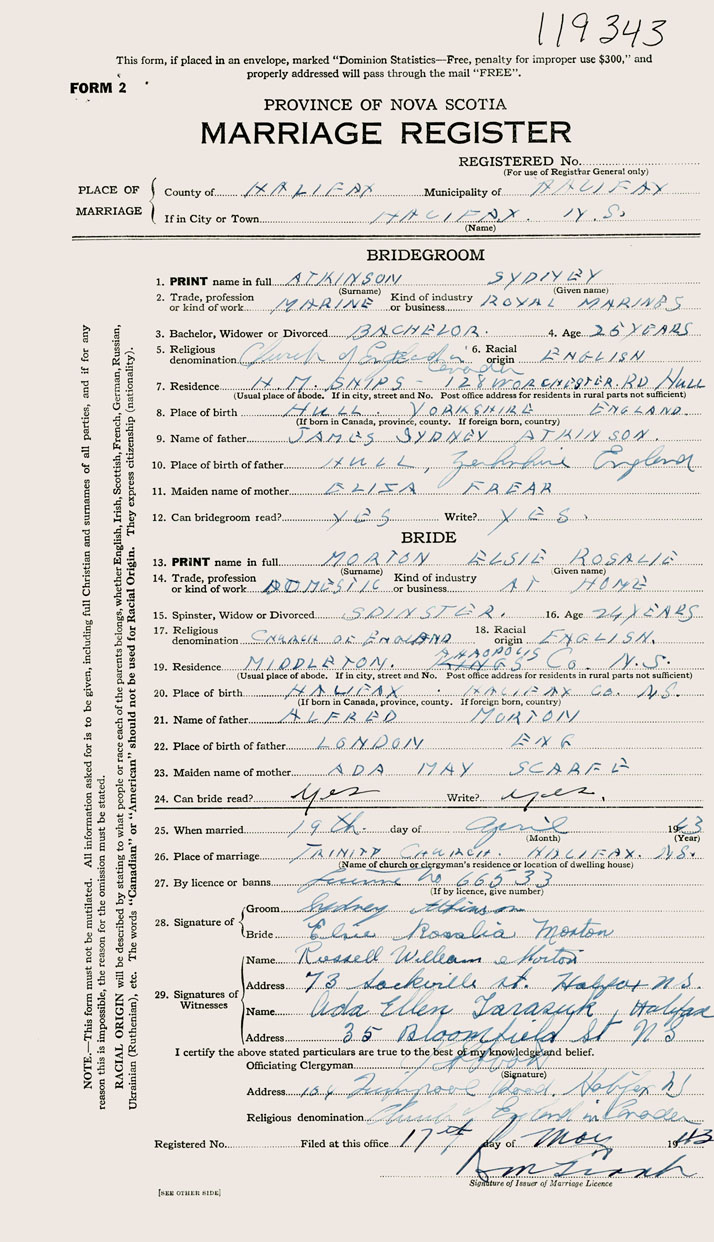 119343
This form, if placed in an envelope, marked “Dominion Statistics—Free, penalty for improper use $300,” and
properly addressed will pass through the mail “FREE”.
FORM 2
PROVINCE OF NOVA SCOTIA
MARRIAGE REGISTER
REGISTERED No.
(For use of Registrar General only)
PLACE OF MARRIAGE
County of HALIFAX Municipality of HALIFAX
If in City or Town HALIFAX. N.S.
(Name)
BRIDEGROOM
1. PRINT name in full ATKINSON SYDNEY
(Surname) (Given name)
2. Trade, profession or kind of work MARINE Kind of industry or business ROYAL MARINES
3. Bachelor, Widower or Divorced BACHELOR. 4. Age 25 YEARS
5. Religious denomination Church of England in Canada 6. Racial origin ENGLISH
7. Residence H.M. SHIPS - 128 WORCHESTER. RD HULL
(Usual place of abode. If in city, street and No. Post office address for residents in rural parts not sufficient)
8. Place of birth HULL. YORKSHIRE ENGLAND.
(If born in Canada, province, county. If foreign born, country)
9. Name of father JAMES SYDNEY ATKINSON.
10. Place of birth of father HULL, Yorkshire England
11. Maiden name of mother ELIZA FREAR
12. Can bridegroom read? YES Write? YES.
BRIDE
13. PRINT name in full MORTON ELSIE ROSALIE
(Surname) (Given name)
14. Trade, profession or kind of work DOMESTIC Kind of industry or business AT HOME
15. Spinster, Widow or Divorced SPINSTER. 16. Age 24 YEARS
17. Religious denomination CHURCH OF ENGLAND 18. Racial origin ENGLISH.
19. Residence MIDDLETON. KINGS ANAPOLIS Co. N.S.
(Usual place of abode. If in city, street and No. Post office address for residents in rural parts not sufficient)
20. Place of birth HALIFAX. HALIFAX Co. N.S.
(If born in Canada, province, county. If foreign born, country)
21. Name of father ALFRED MORTON
22. Place of birth of father LONDON ENG
23. Maiden name of mother ADA MAY SCARFE
24. Can bride read? yes Write? yes.
25. When married 19th day of April 1943
(Month) (Year)
26. Place of marriage TRINITY CHURCH. HALIFAX. N.S.
(Name of church or clergyman's residence or location of dwelling house)
27. By licence or banns No 66533
(If by licence, give number)
28. Signature of
Groom Sydney Atkinson
Bride Elsie Rosalie Morton
29. Signatures of Witnesses
Name Russell William Morton
Address 73 Sackville St. Halifax N.S.
Name Ada Ellen Tarasuk, Halifax
Address 35 Bloomfield St N S
I certify the above stated particulars are true to the best of my knowledge and belief.
Officiating Clergyman
(Signature)
Address Road. Halifax NS
Religious denomination Church of England in Canada
Registered No. Filed at this office 17th day of May 1943
Signature of Issuer of Marriage Licence
[SEE OTHER SIDE]
NOTE.—This form must not be mutilated. All information asked for is to be given, including full Christian and surnames of all parties, and if for any
reason this is impossible, the reason for the omission must be stated.
RACIAL ORIGIN will be described by stating to what people or race each of the parents belongs, whether English, Irish, Scottish, French, German, Russian,
Ukrainian (Ruthenian), etc. The words “Canadian” or “American” should not be used for Racial Origin. They express citizenship (nationality).